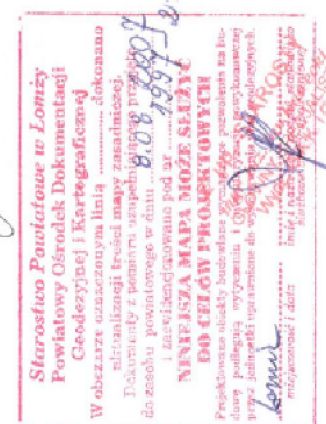 Starostwo Powiatowe w Łomży
Powiatowy Ośrodek Dokumentacji
Geodezyjnej i Kartograficznej
W obszarze oznaczonym linią ............ dokonano
aktualizacji treści mapy zasadniczej.
Dokumenty z pomiaru uzupełniającego przyjęto
do zasobu powiatowego w dniu
i zaewidencjonowano pod nr
NINIEJSZA MAPA MOŻE SŁUŻYĆ
DO CELÓW PROJEKTOWYCH
Projektowane obiekty budowlane wymagające pozwolenia na bu-
dowę podlegają wytyczeniu i
przez jednostki uprawnione do
Łomża
miejscowość i data
imię i nazwisko